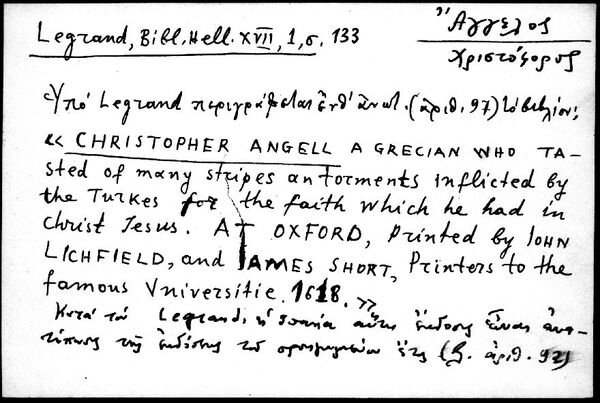 Legrand, Bibl. Hell. XVII, 1, σ. 133
Ἄγγελος
Χριστόφορος
Ὑπό Legrand περιγράφεται ἔνθ' ἀνωτ. (ἀριθ. 97) τό βιβλίον:
« CHRISTOPHER ANGELL A GRECIAN WHO TA-
sted of many stripes an torments inflicted by
the Turkes for the faith which he had in
Christ Jesus. AT OXFORD, Printed by JOHN
LICHFIELD, and JAMES SHORT, Printers to the
famous Vniversitie. 1618. »
Κατά τόν Legrand, ἡ αὕτη ἔκδοσις εἶναι ἀνα-
τύπωσις τῆς ἐκδόσεως τοῦ προηγουμένου ἔτους (ἀριθ. 92)